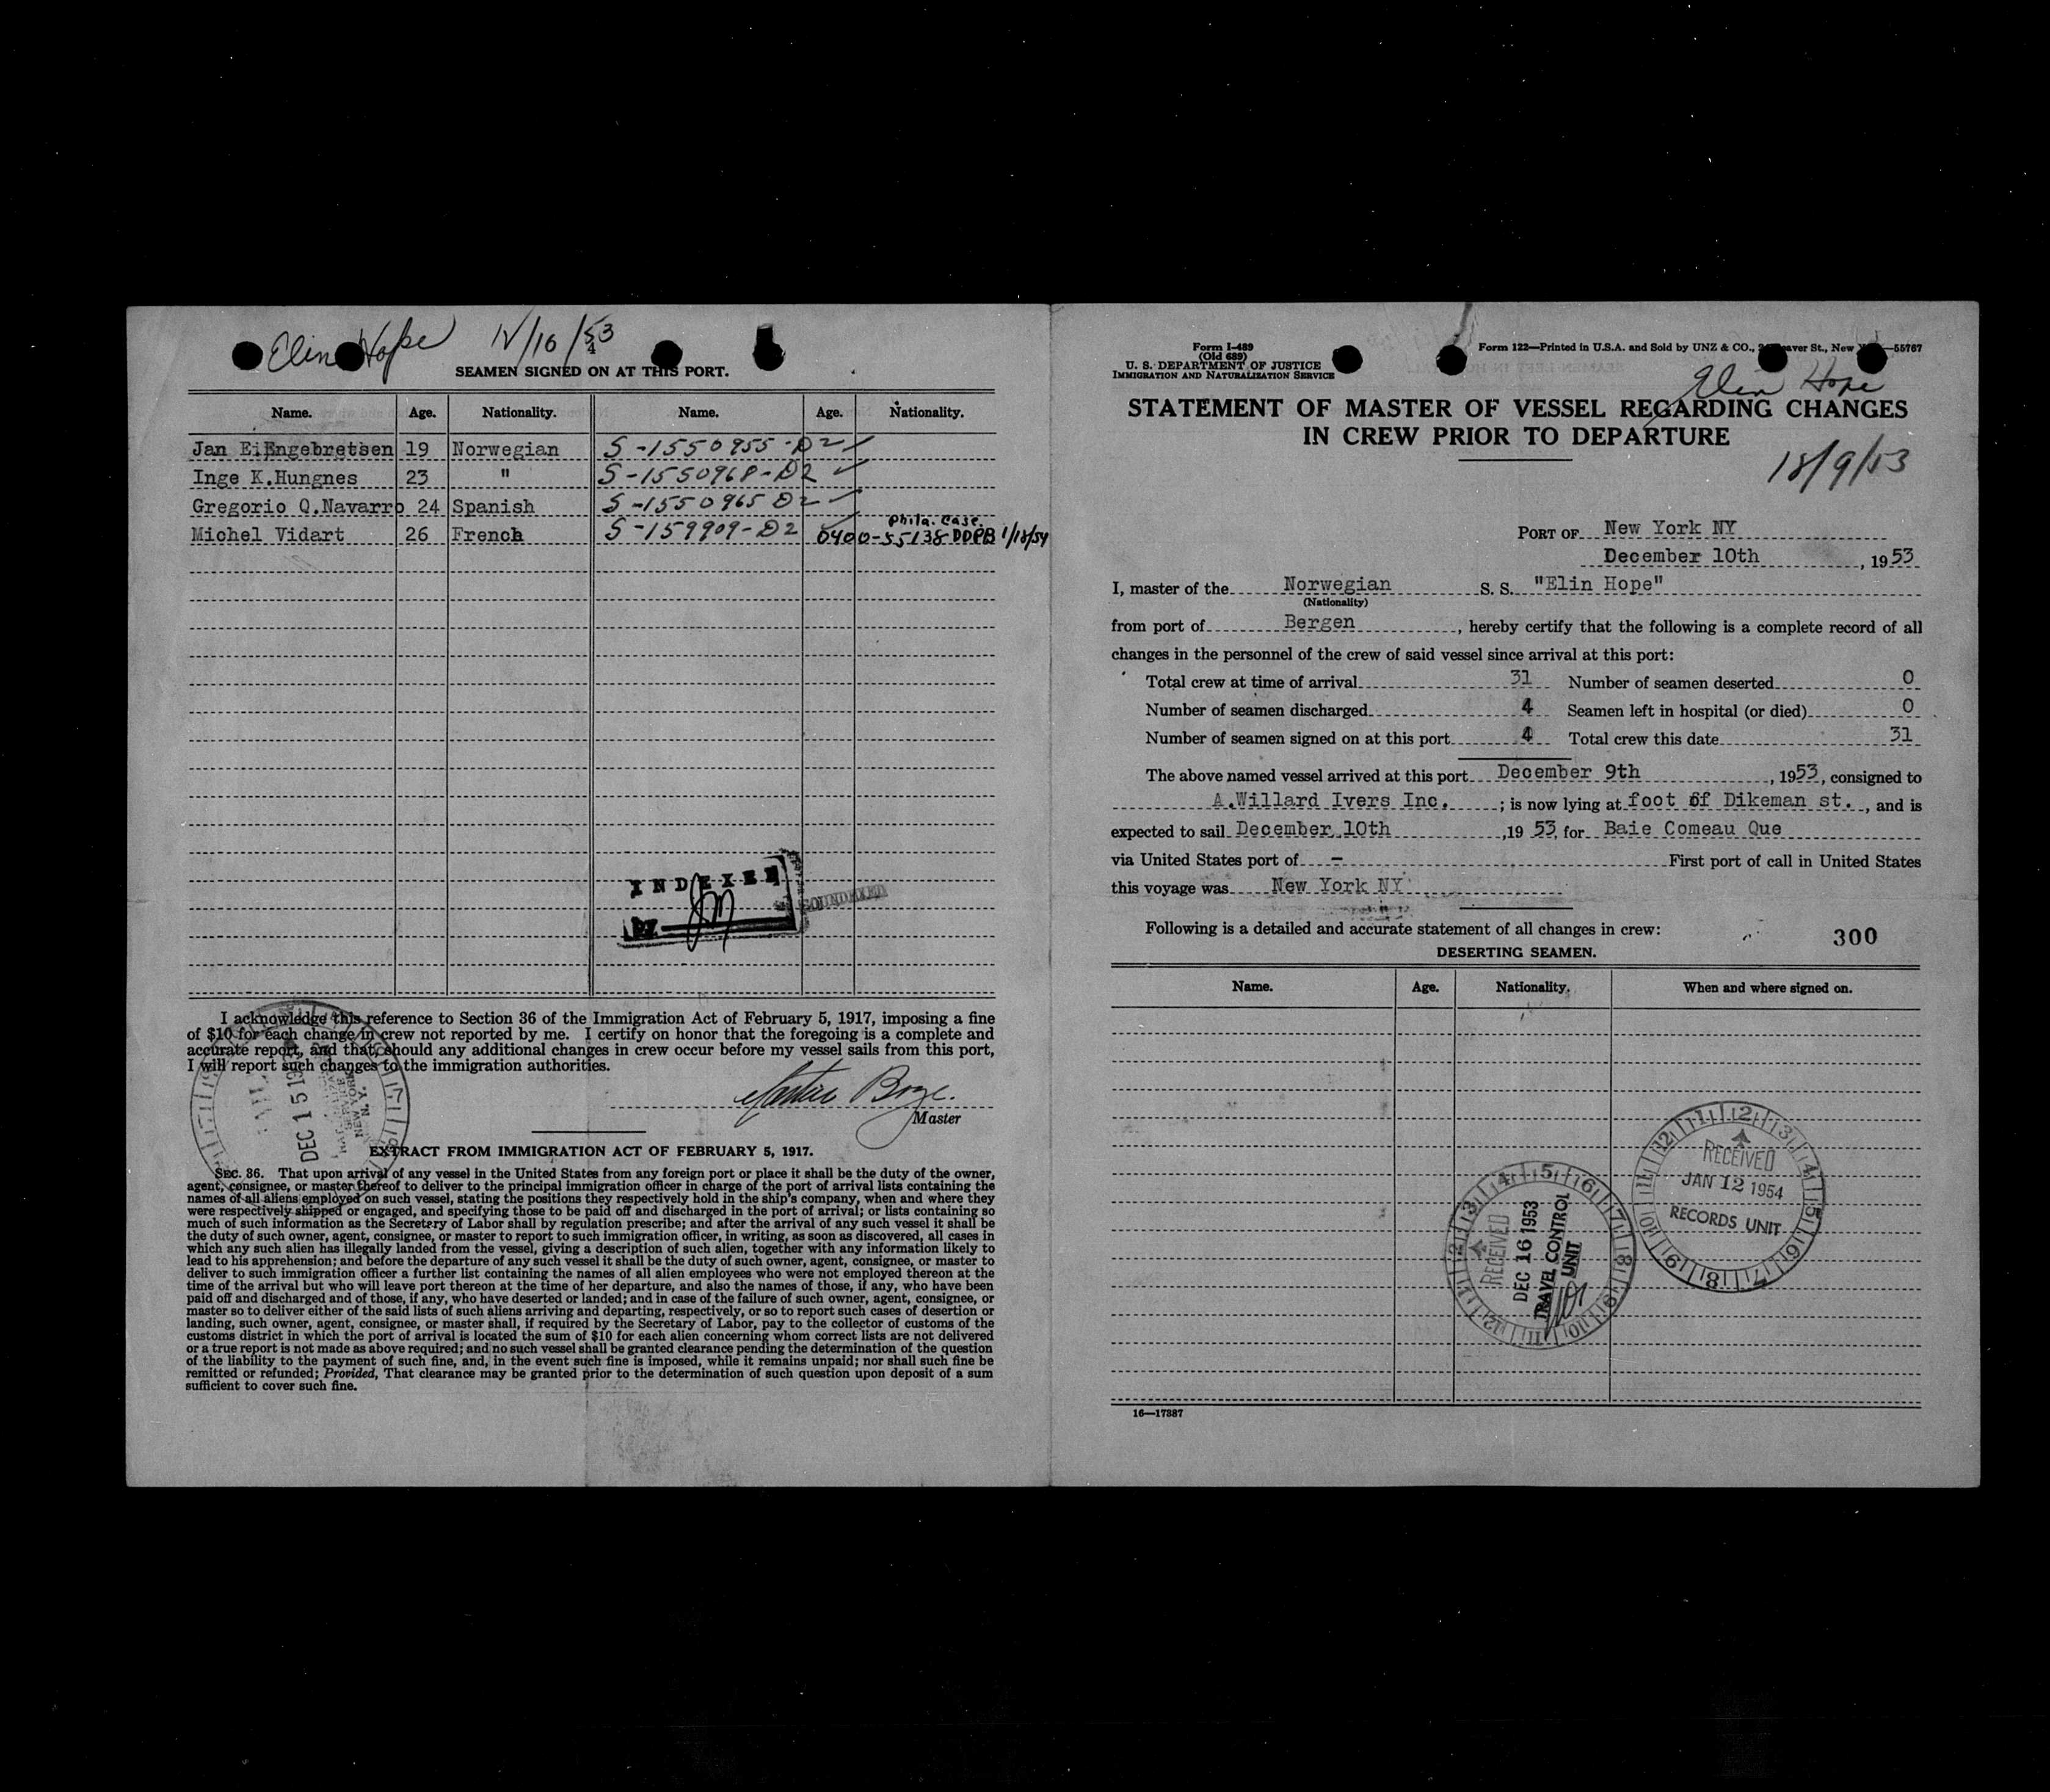 Elin Hope 12/10/53
SEAMEN SIGNED ON AT THIS PORT.
Name. Age. Nationality. Name. Age. Nationality.
Jan E.Engebretsen 19 Norwegian S-1550955-D2
Inge K.Hungnes 23 " S-1550968-D2
Gregorio Q.Navarro 24 Spanish S-1550965 D2
Michel Vidart 26 French S-159909-D2 Phila. Case.
0400-55138 DDPB 1/18/54
INDEXED
BY
SOUNDEXED
I acknowledge this reference to Section 36 of the Immigration Act of February 5, 1917, imposing a fine
of $10 for each change in crew not reported by me. I certify on honor that the foregoing is a complete and
accurate report, and that, should any additional changes in crew occur before my vessel sails from this port,
I will report such changes to the immigration authorities.
DEC 15 19
NEW YORK
N. Y.
Master
EXTRACT FROM IMMIGRATION ACT OF FEBRUARY 5, 1917.
SEC. 36. That upon arrival of any vessel in the United States from any foreign port or place it shall be the duty of the owner,
agent, consignee, or master thereof to deliver to the principal immigration officer in charge of the port of arrival lists containing the
names of all aliens employed on such vessel, stating the positions they respectively hold in the ship's company, when and where they
were respectively shipped or engaged, and specifying those to be paid off and discharged in the port of arrival; or lists containing so
much of such information as the Secretary of Labor shall by regulation prescribe; and after the arrival of any such vessel it shall be
the duty of such owner, agent, consignee, or master to report to such immigration officer, in writing, as soon as discovered, all cases in
which any such alien has illegally landed from the vessel, giving a description of such alien, together with any information likely to
lead to his apprehension; and before the departure of any such vessel it shall be the duty of such owner, agent, consignee, or master to
deliver to such immigration officer a further list containing the names of all alien employees who were not employed thereon at the
time of the arrival but who will leave port thereon at the time of her departure, and also the names of those, if any, who have been
paid off and discharged and of those, if any, who have deserted or landed; and in case of the failure of such owner, agent, consignee, or
master so to deliver either of the said lists of such aliens arriving and departing, respectively, or so to report such cases of desertion or
landing, such owner, agent, consignee, or master shall, if required by the Secretary of Labor, pay to the collector of customs of the
customs district in which the port of arrival is located the sum of $10 for each alien concerning whom correct lists are not delivered
or a true report is not made as above required; and no such vessel shall be granted clearance pending the determination of the question
of the liability to the payment of such fine, and, in the event such fine is imposed, while it remains unpaid; nor shall such fine be
remitted or refunded; Provided, That clearance may be granted prior to the determination of such question upon deposit of a sum
sufficient to cover such fine.
Form I-489
(Old 689)
U. S. DEPARTMENT OF JUSTICE
IMMIGRATION AND NATURALIZATION SERVICE
Form 122—Printed in U.S.A. and Sold by UNZ & CO., St., New —55767
Elin Hope
STATEMENT OF MASTER OF VESSEL REGARDING CHANGES
IN CREW PRIOR TO DEPARTURE
12/9/53
PORT OF New York NY
December 10th, 1953
I, master of the Norwegian S. S. "Elin Hope"
(Nationality)
from port of Bergen, hereby certify that the following is a complete record of all
changes in the personnel of the crew of said vessel since arrival at this port:
Total crew at time of arrival 31 Number of seamen deserted 0
Number of seamen discharged 4 Seamen left in hospital (or died) 0
Number of seamen signed on at this port 4 Total crew this date 31
The above named vessel arrived at this port December 9th, 1953, consigned to
A.Willard Ivers Inc. ; is now lying at foot of Dikeman st., and is
expected to sail December 10th, 1953, for Baie Comeau Que
via United States port of - First port of call in United States
this voyage was New York NY
Following is a detailed and accurate statement of all changes in crew:
300
DESERTING SEAMEN.
Name. Age. Nationality. When and where signed on.
RECEIVED
JAN 12 1954
RECORDS UNIT
RECEIVED
DEC 16 1953
TRAVEL CONTROL
UNIT
16—17387